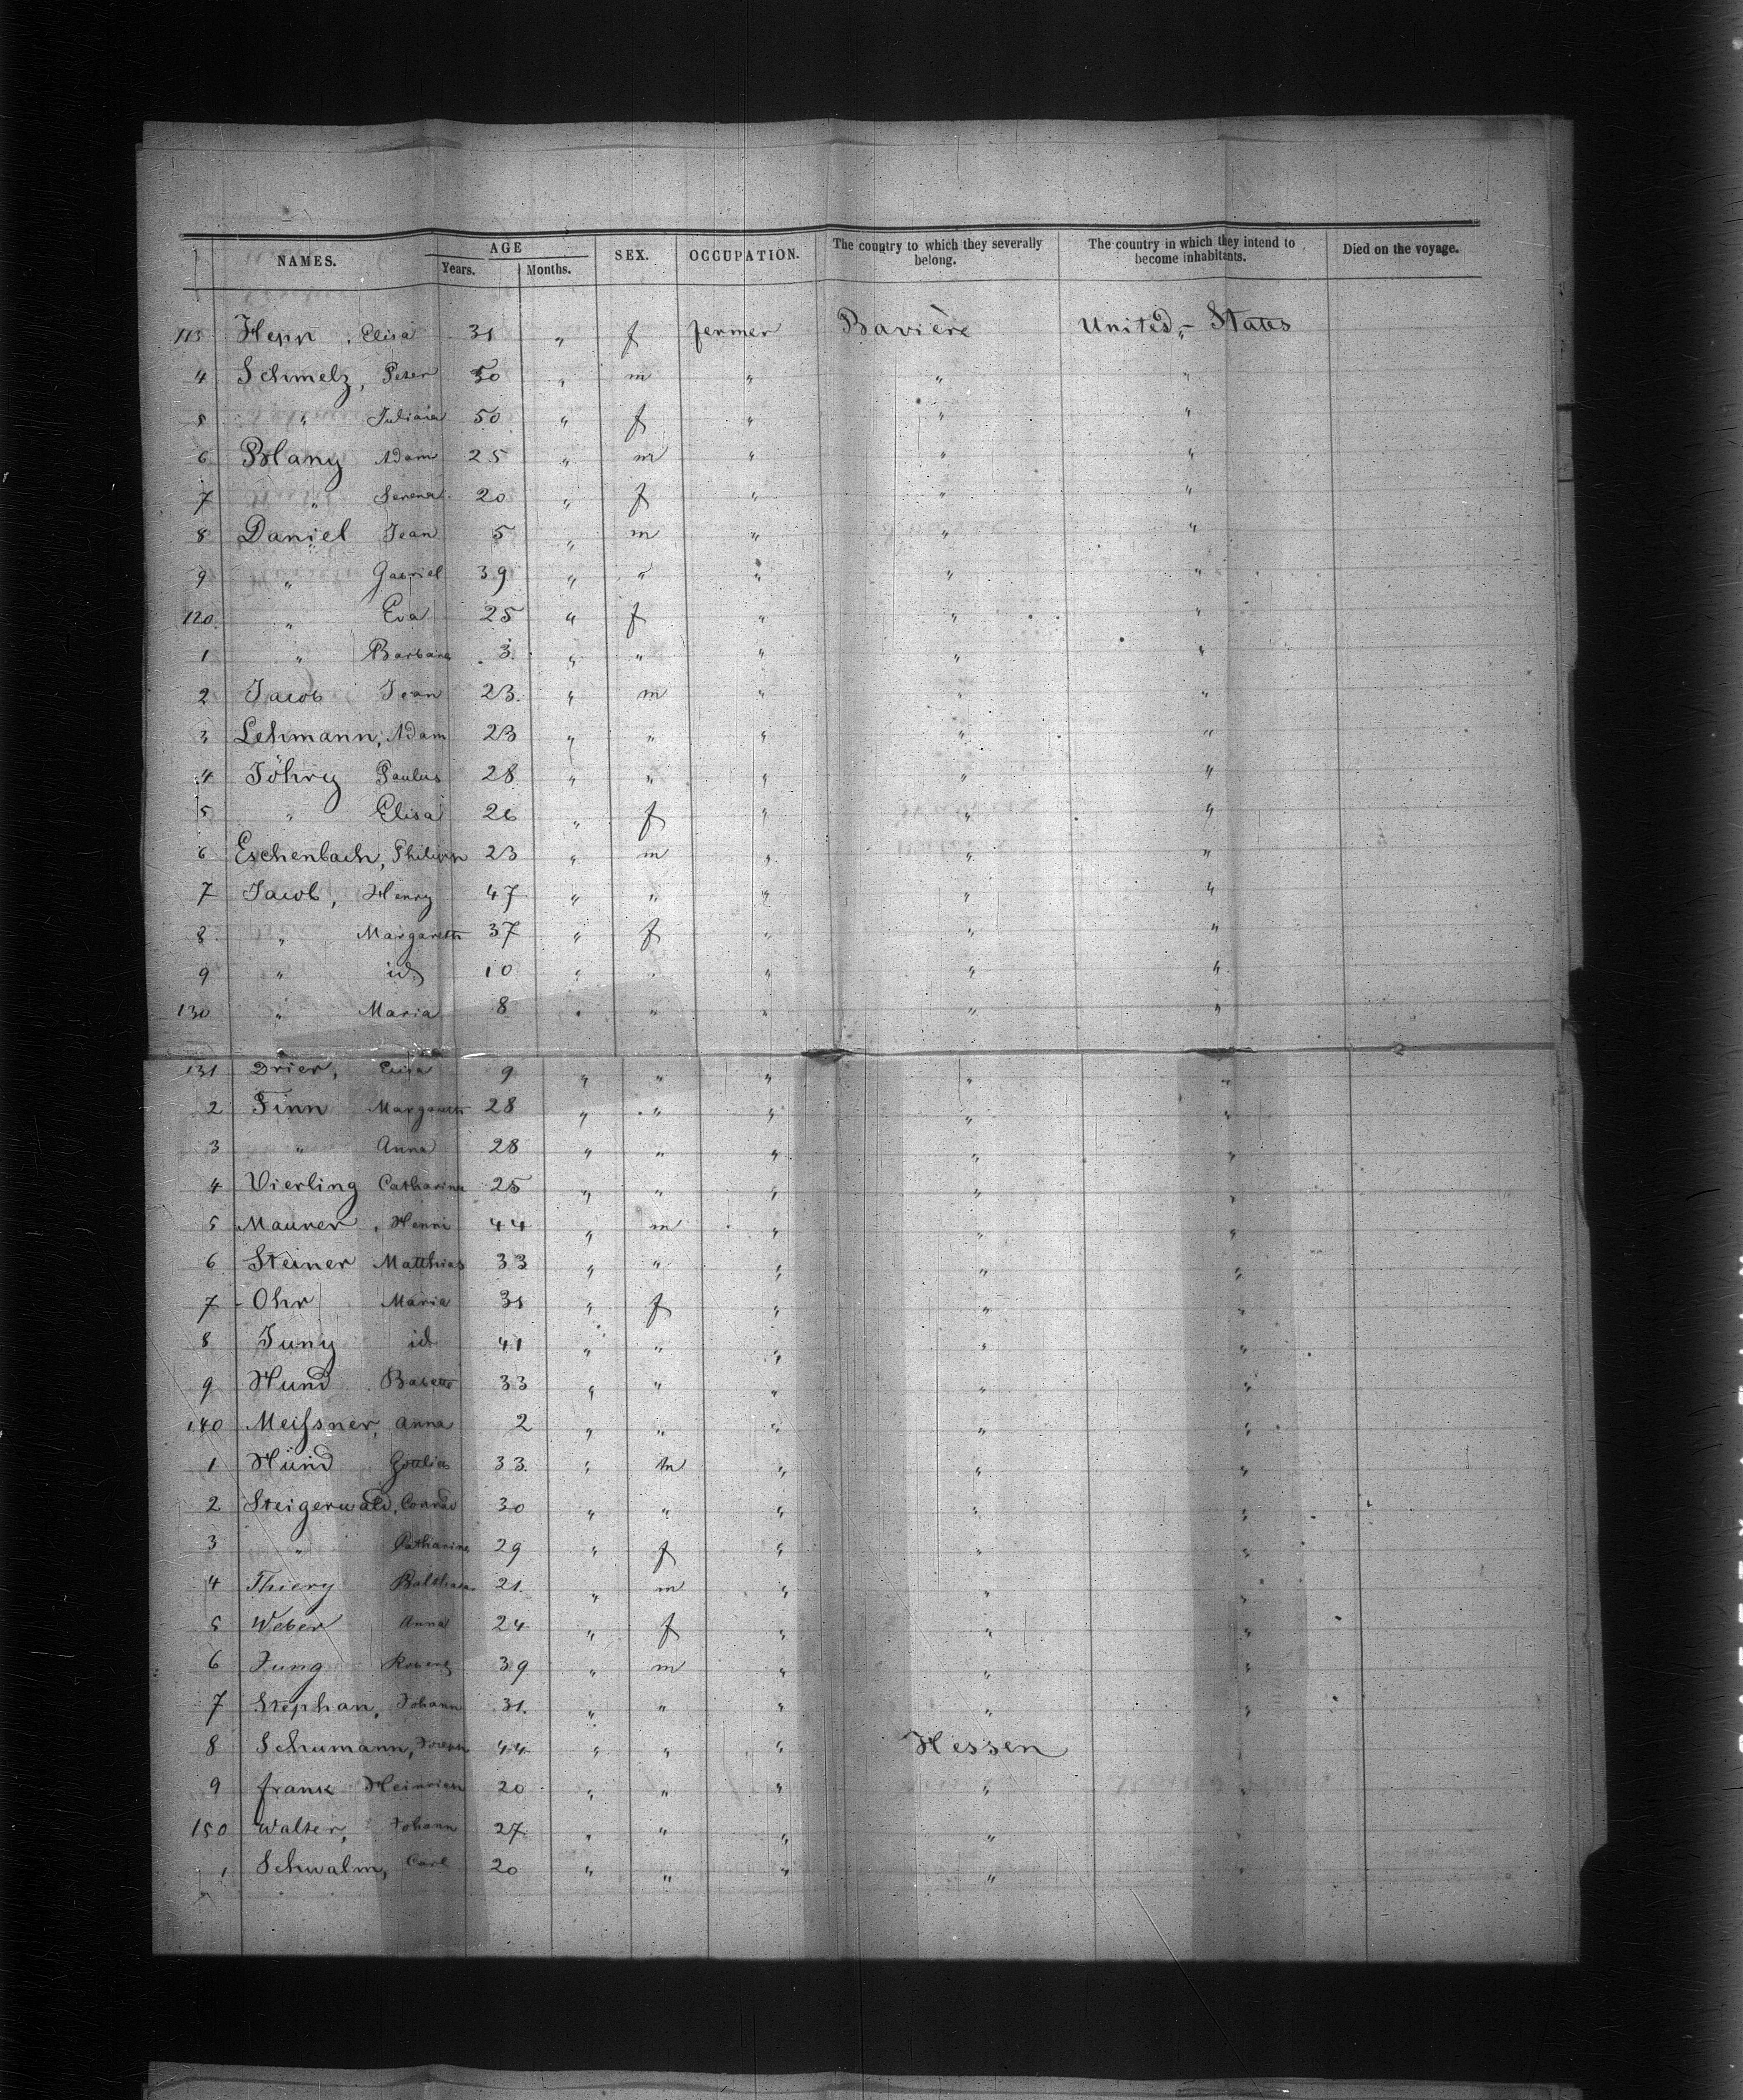 NAMES. AGE Years. Months. SEX. OCCUPATION. The country to which they severally belong. The country in which they intend to become inhabitants. Died on the voyage.
113 Henn, Elisa 31 " f fermer Bavière United-States
4 Schmelz, Peter 50 " m " " "
5 " Juliana 50 " f " " "
6 Blany Adam 25 " m " " "
7 " Serena 20 " f " " "
8 Daniel Jean 5 " m " " "
9 " Gabriel 39 " " " " "
120 " Eva 25 " f " " "
1 " Barbara 3 " " " " "
2 Jacob Jean 23 " m " " "
3 Lehmann, Adam 23 " " " " "
4 Jöhry Paulus 28 " " " " "
5 " Elisa 26 " f " " "
6 Eschenbach, Philipp 23 " m " " "
7 Jacob, Henry 47 " " " " "
8 " Margareth 37 " f " " "
9 " id 10 " " " " "
130 " Maria 8 " " " " "
131 Drier, Elisa 9 " " " " "
2 Finn Margareth 28 " " " " "
3 " Anna 28 " " " " "
4 Vierling Catharina 25 " " " " "
5 Maurer, Henri 44 " m " " "
6 Steiner Matthias 33 " " " " "
7 Ohr Maria 31 " f " " "
8 Juny id 41 " " " " "
9 Hund Babette 33 " " " " "
140 Meißner, Anna 2 " " " " "
1 Hund Gottlieb 33 " m " " "
2 Steigerwald, Conrad 30 " " " " "
3 " Catharina 29 " f " " "
4 Thiery Balthasar 21 " m " " "
5 Weber Anna 24 " f " " "
6 Jung 39 " m " " "
7 Stephan, Johann 31 " " " " "
8 Schumann, 44 " " " Hessen
9 Frank Heinrich 20 " " " " "
150 Walter, Johann 27 " " " " "
1 Schwalm, Carl 20 " " " "